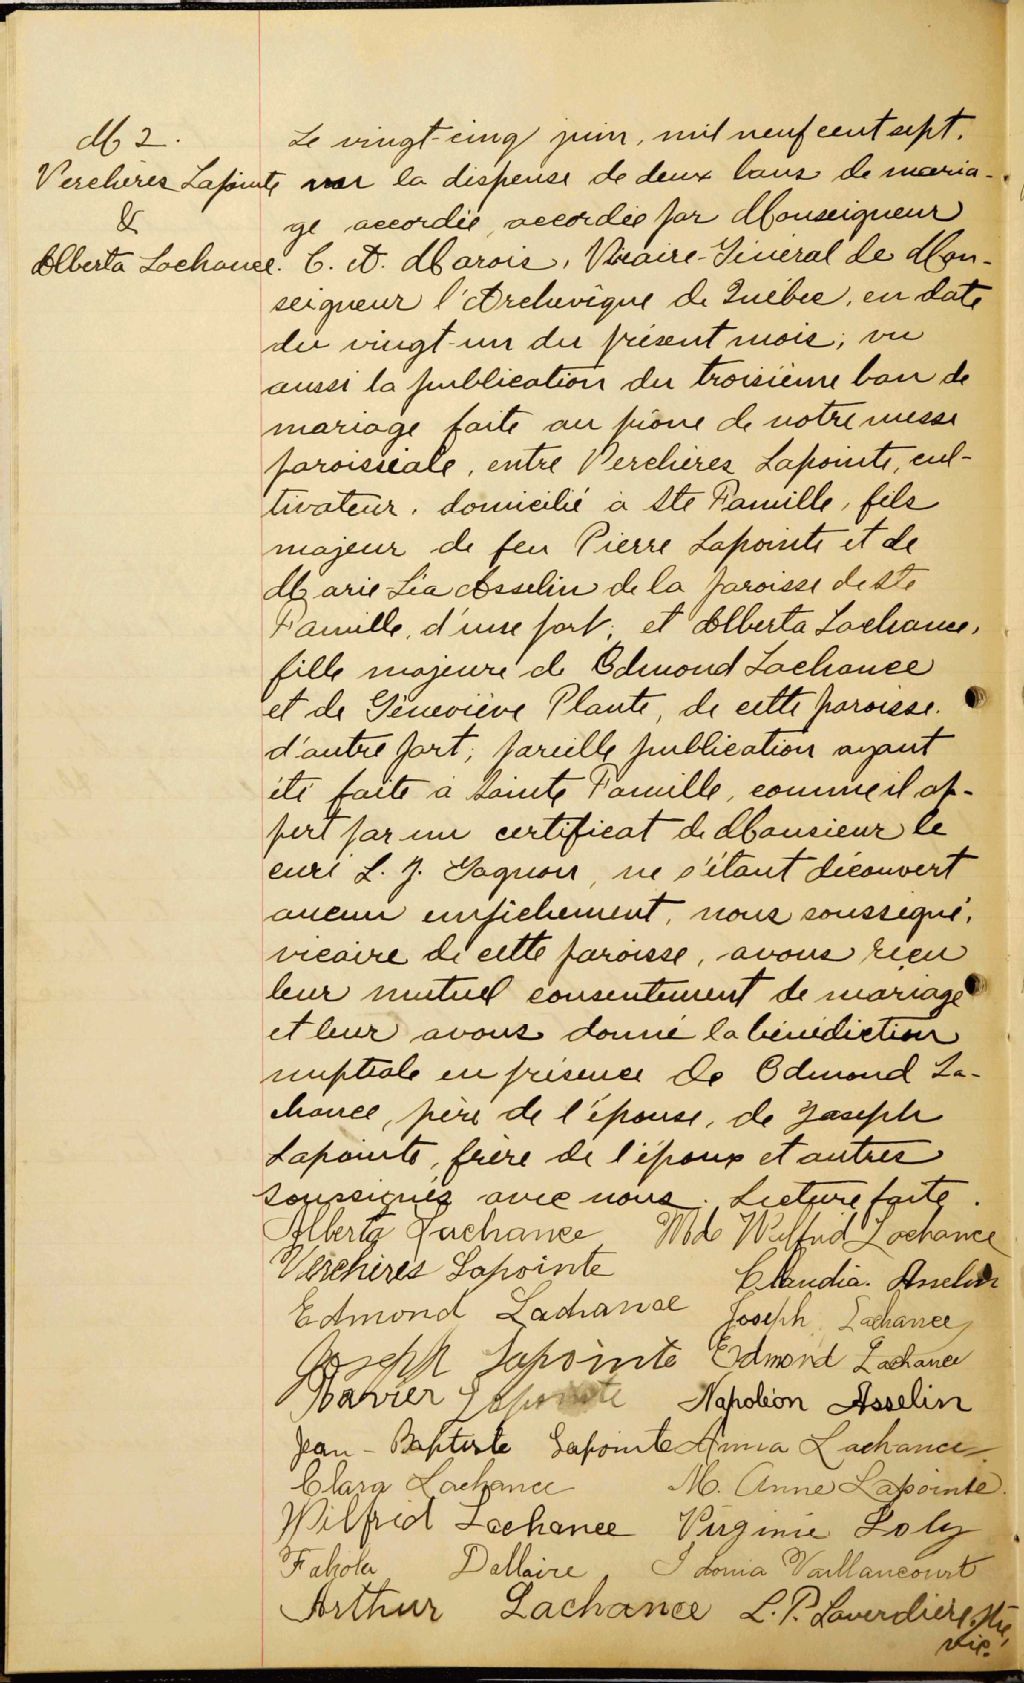 M 2.
Verchères Lapointe
&
Alberta Lachance.
Le vingt-cinq juin, mil neuf cent sept,
vu la dispense de deux bans de maria-
ge accordée, accordée par Monseigneur
C. A. Marois, Vicaire-Général de Mon-
seigneur l'Archevêque de Québec, en date
du vingt-un du présent mois; vu
aussi la publication du troisième ban de
mariage faite au prône de notre messe
paroissiale, entre Verchères Lapointe, cul-
tivateur, domicilié à Ste Famille, fils
majeur de feu Pierre Lapointe et de
Marie Léa Asselin de la paroisse de Ste
Famille, d'une part; et Alberta Lachance,
fille majeure de Edmond Lachance
et de Géneviève Plante, de cette paroisse.
d'autre part; pareille publication ayant
été faite à Sainte Famille, comme il ap-
pert par un certificat de Monsieur le
curé L. J. Gagnon, ne s'étant découvert
aucun empêchement, nous soussigné,
vicaire de cette paroisse, avons reçu
leur mutuel consentement de mariage
et leur avons donné la bénédiction
nuptiale en présence de Edmond La-
chance, père de l'épouse, de Joseph
Lapointe, frère de l'époux et autres
soussignés avec nous. Lecture faite.
Alberta Lachance Mde Wilfrid Lachance
Verchères Lapointe Claudia Asselin
Edmond Lachance Joseph Lachance
Joseph Lapointe Edmond Lachance
Xavier Lapointe Napoléon Asselin
Jean-Baptiste Lapointe Anna Lachance
Clara Lachance M. Anne Lapointe
Wilfrid Lachance Virginie Foly
Fabjola Dallaire Idonia Vaillancourt
Arthur Lachance L. P. Laverdière, ptre,
vic.